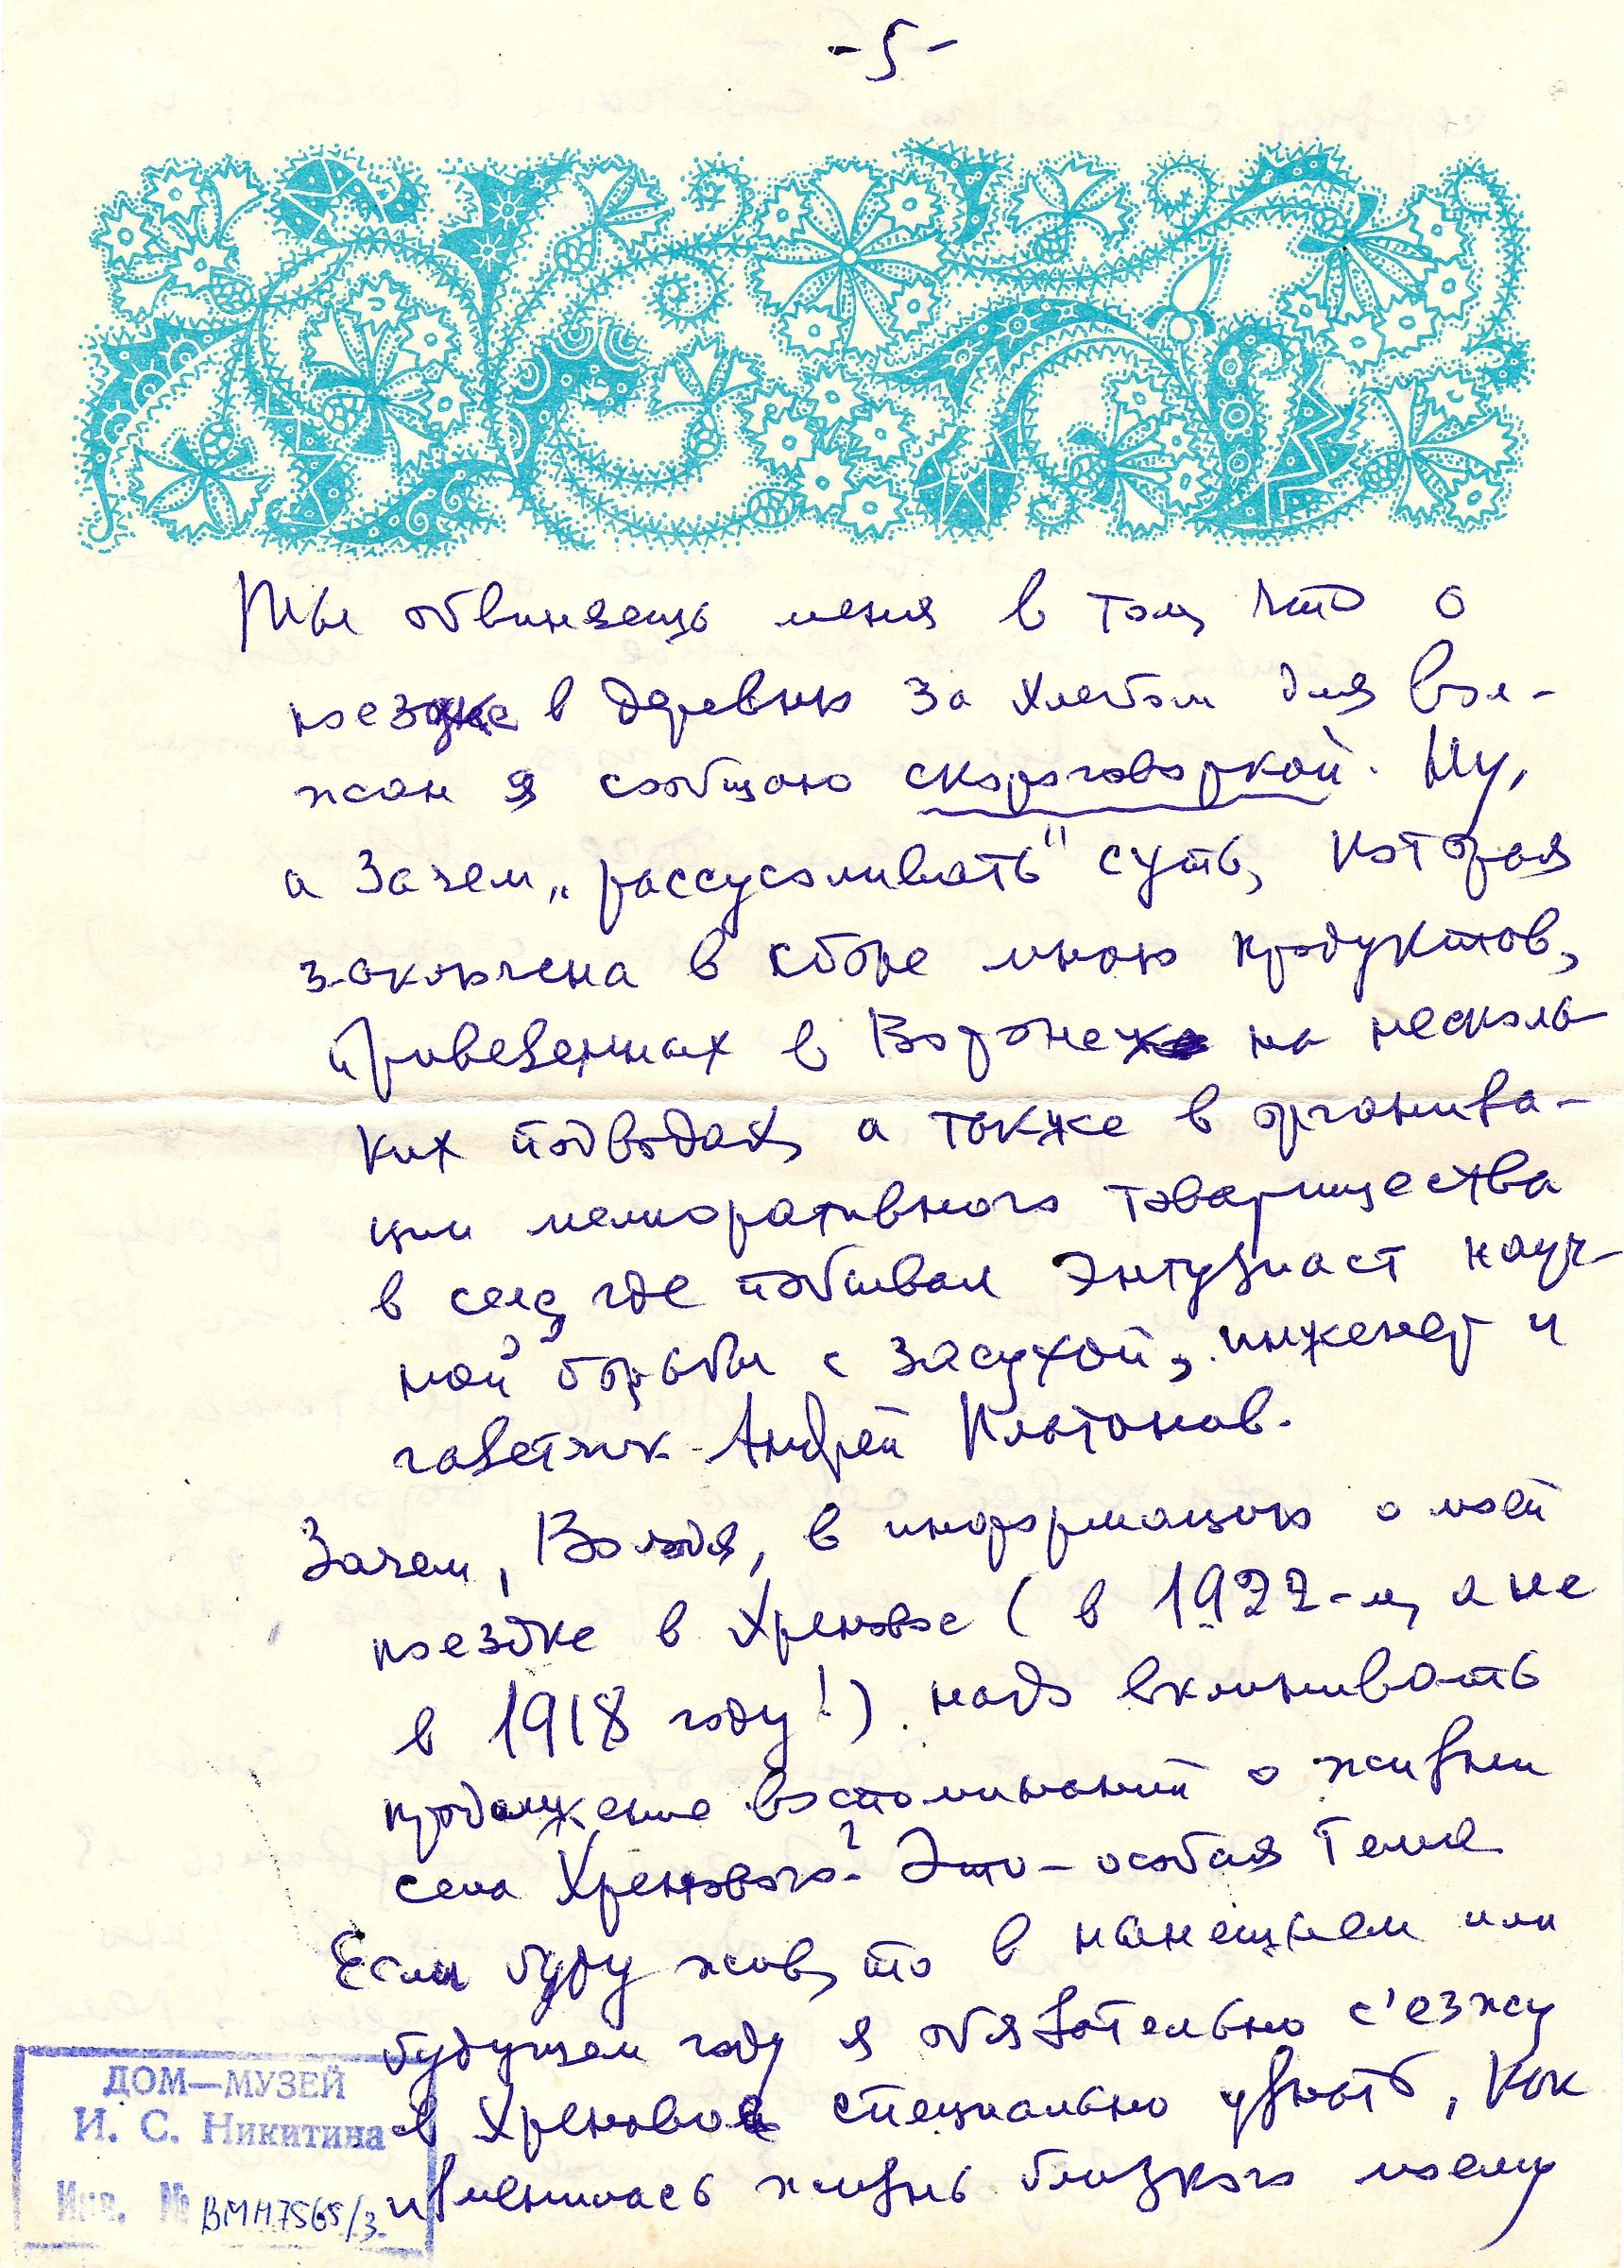 -5-
Ты обвиняешь меня в том, что о
поездке в деревню за хлебом для Вол-
жан я сообщаю скороговоркой. Ну,
а зачем „рассусоливать" суть, которая
заключена в сборе мною продуктов,
привезенных в Воронеж на несколь-
ких подводах, а также в организа-
ции мелиоративного товарищества
в селе, где побывал энтузиаст науч-
ной борьбы с засухой, инженер и
газетчик - Андрей Платонов.
Зачем, Володя, в информацию о моей
поездке в Хреновое (в 1922-м, а не
в 1918 году!) надо вклинивать
продолжение воспоминаний о жизни
села Хренового? Это - особая тема
Если буду жив, то в нынешнем или
будущем году я обязательно с'езжу
в Хреновое специально узнать, как
изменилась жизнь близкого моему
ДОМ—МУЗЕЙ
И. С. Никитина
Инв. № ВМН7565/3